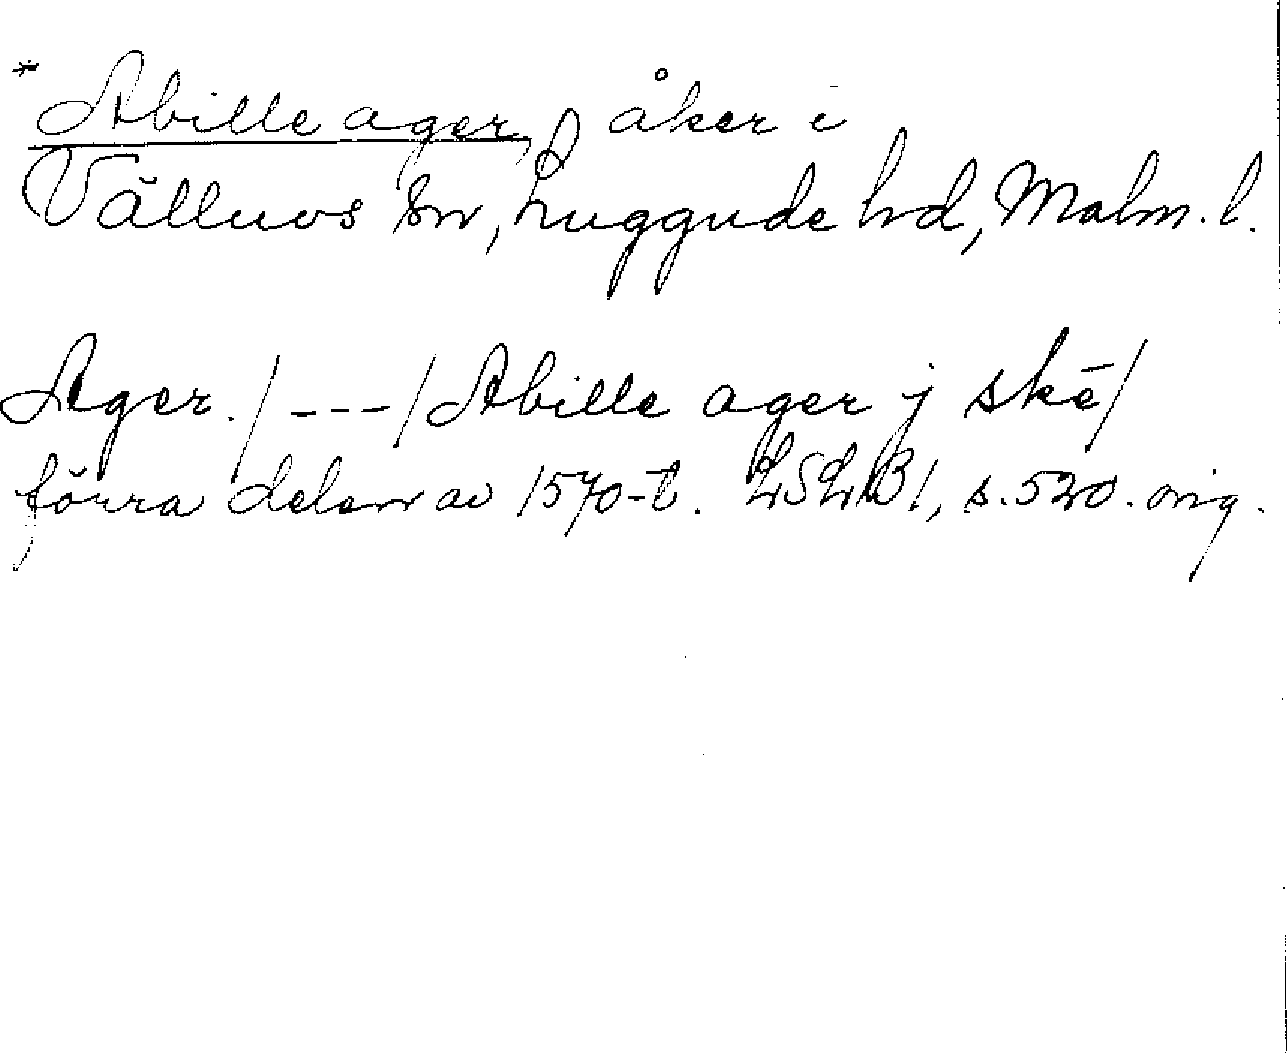 *Abille ager, åker i
Välluvs sn, Luggude hd, Malm. l.
Ager. /---/ Abille ager j skē/
förra delen av 1570-t. LSLB 1, s. 520. orig.